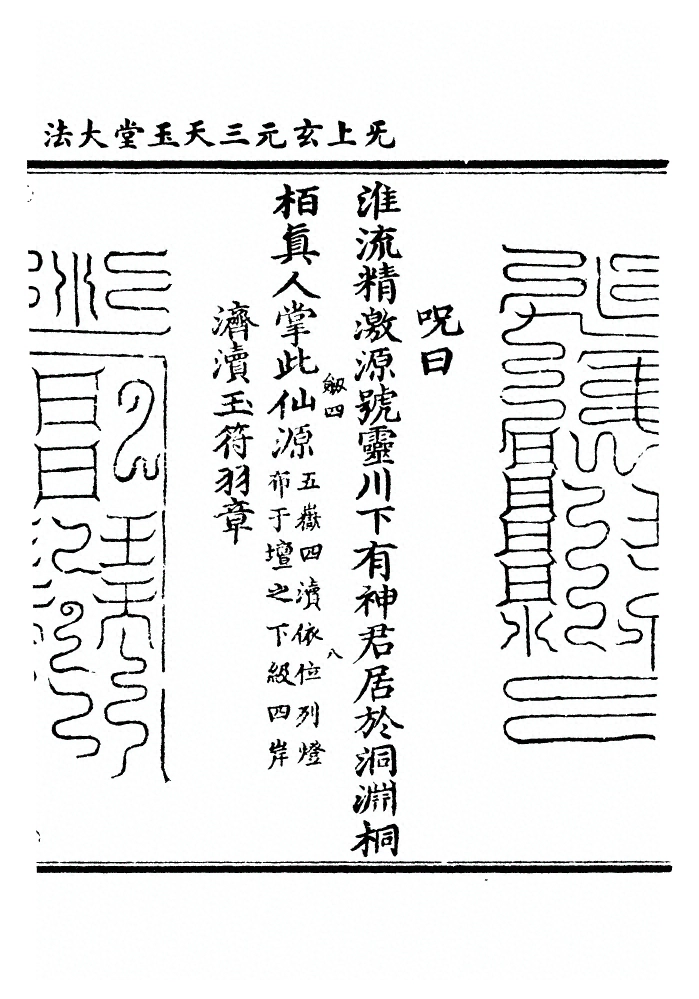 旡上玄元三天玉堂大法
呪曰
淮流精激源號靈川下有神君居於洞淵桐
劒四
八
栢眞人掌此仙源
五嶽四瀆依位列燈
布于壇之下級四岸
濟瀆玉符羽章